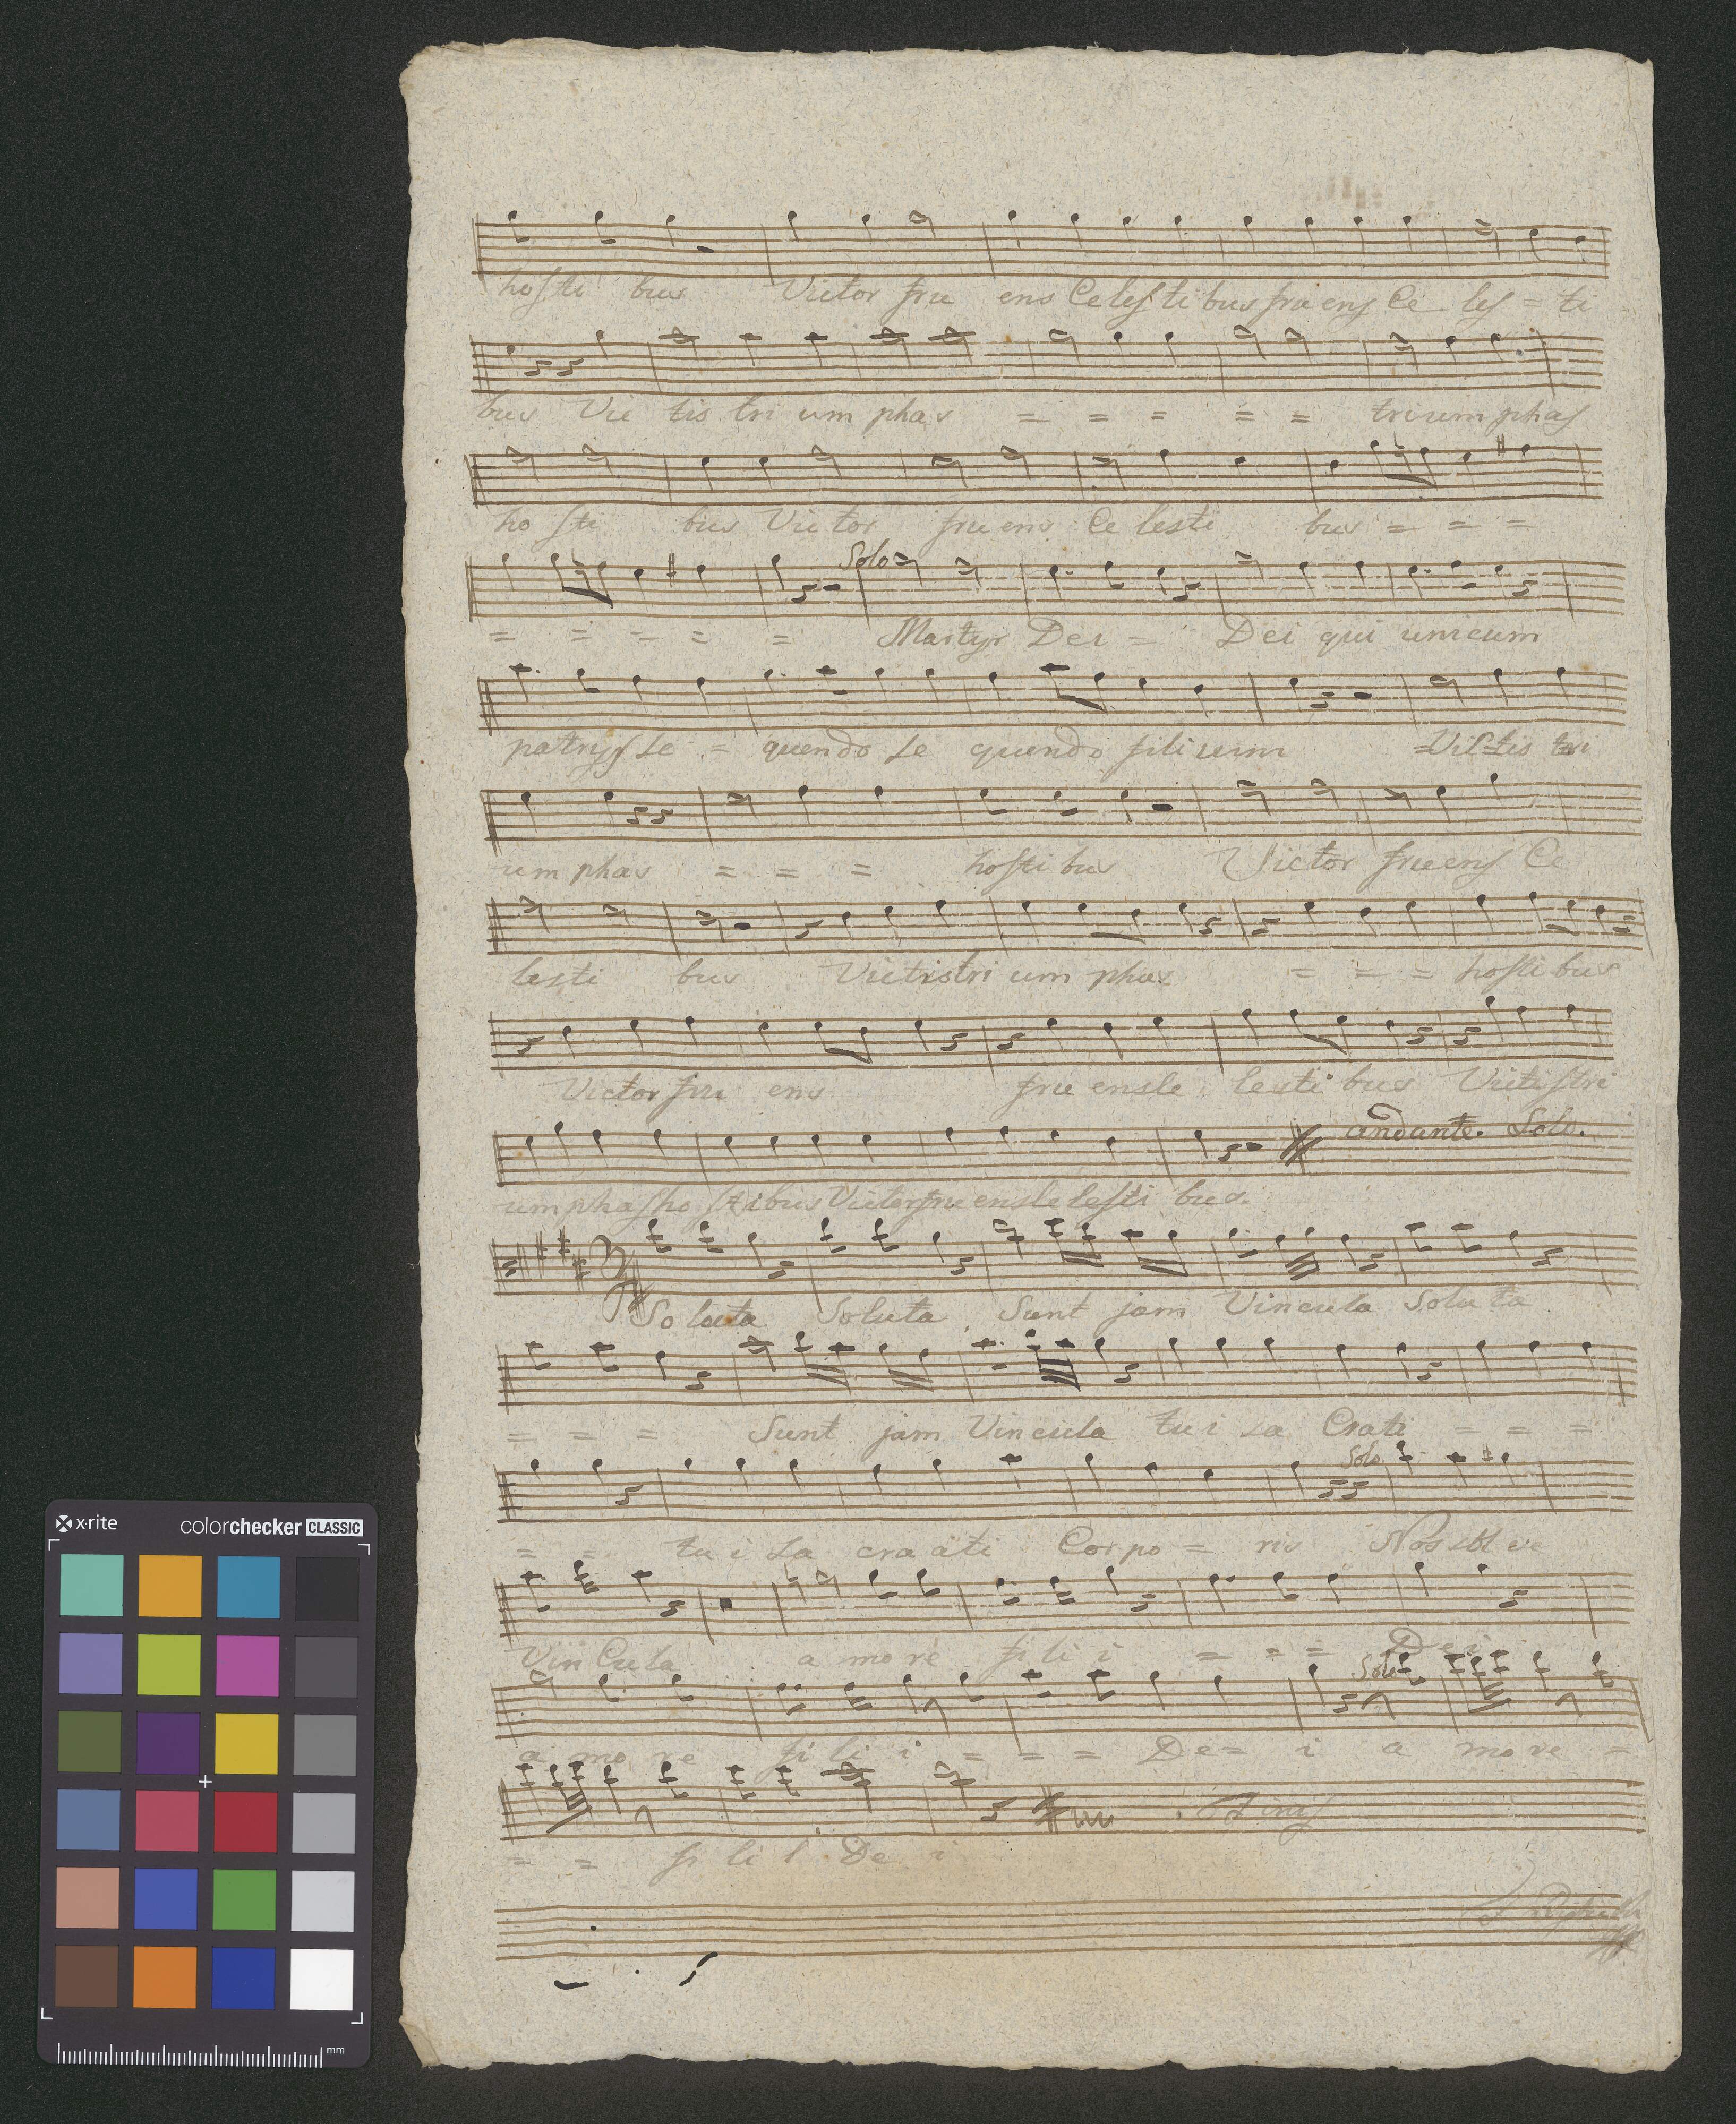 hosti bus Victor fru ens Celestibus fruens Ce les = ti
bus Vic tis tri um phas = = = = = triumphas
ho sti bus Victor fruens Ce lesti bus = = =
Solo
= = = = = Martyr Dei = Dei qui unicum
patrys se = quendo se quendo filium Vic=tis tri
um phas = = = hostibus Victor fruens Ce
lesti bus Victistri um phas = = = hostibus
Victor fru ens fru ensCe lesti bus Victistri
andante. Solo.
umphashostibusVictorfruensCelesti bus.
Soluta Soluta Sunt jam Vincula Soluta
= = = Sunt jam Vincula tui sa Crati = = =
Solo
= = tu i sa cra ati Corpo = ris Nos
Vin Cula a more fi li i = = = Dei
Solo
a mo re fi li i = = = De = i a more =
Finis
= = fi li i De i